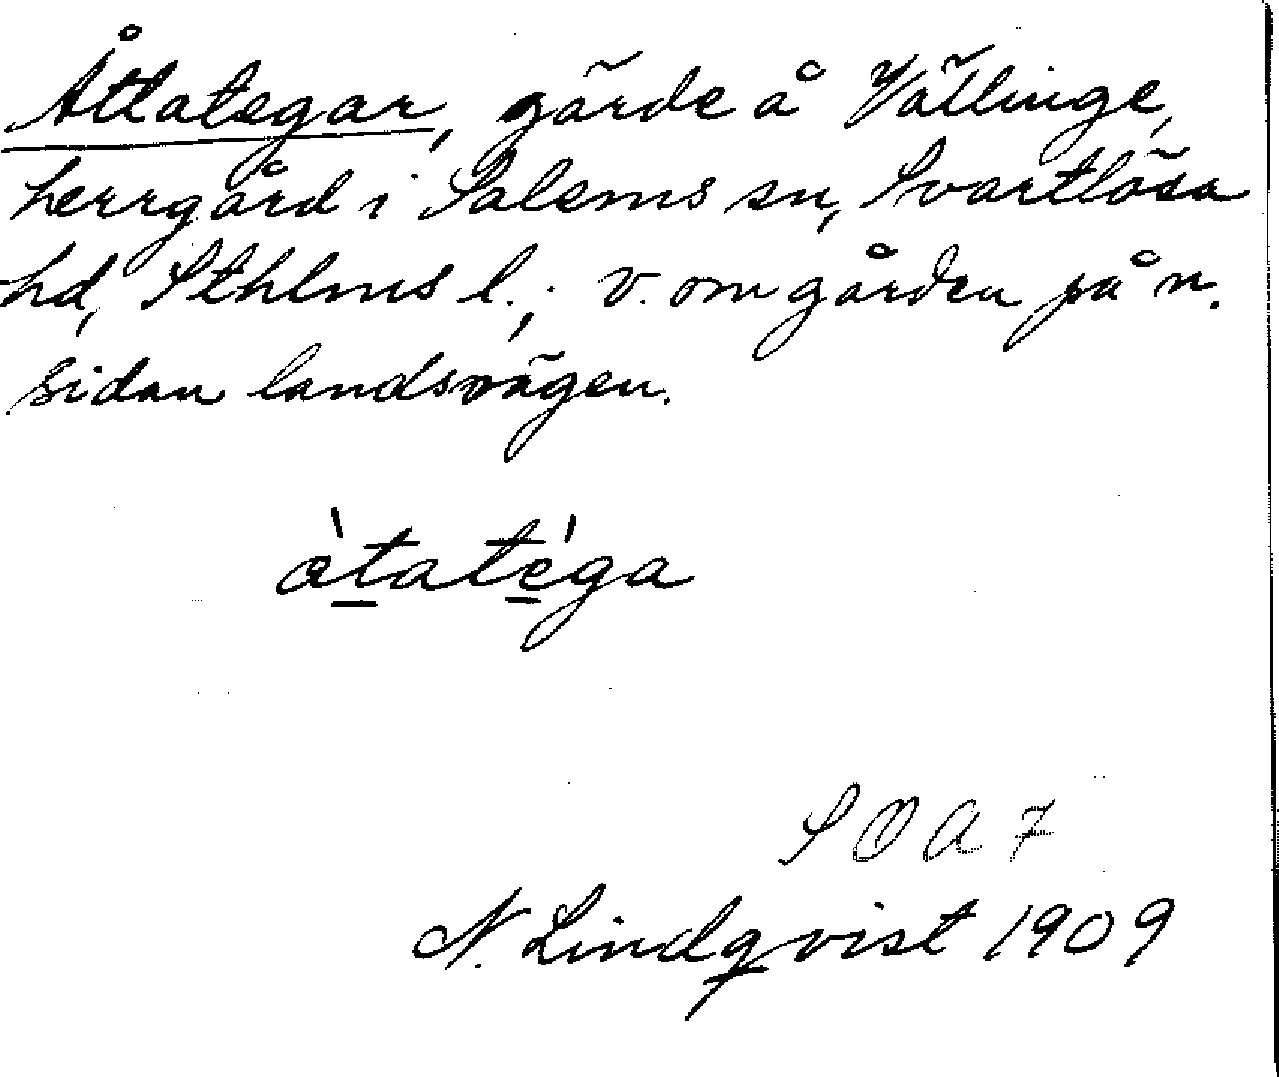 Åttategar, gärde å Vällinge,
herrgård i Salems sn, Svartlösa
hd, Sthlms l.; v. om gården på n.
sidan landsvägen.
àtatéga
SOA 7
N. Lindqvist 1909